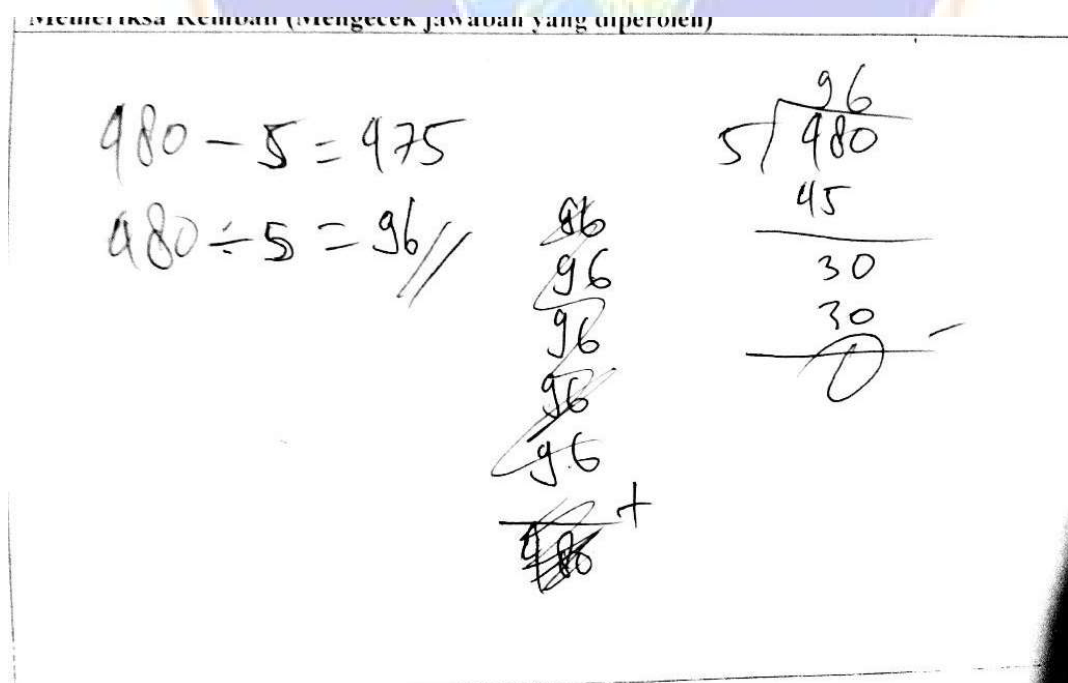 Memeriksa Kembali (Mengecek jawaban yang diperoleh)
480 - 5 = 475
480 ÷ 5 = 96 //
96
96
96
96
96
+
480
96
5 480
45
30
30 -
0